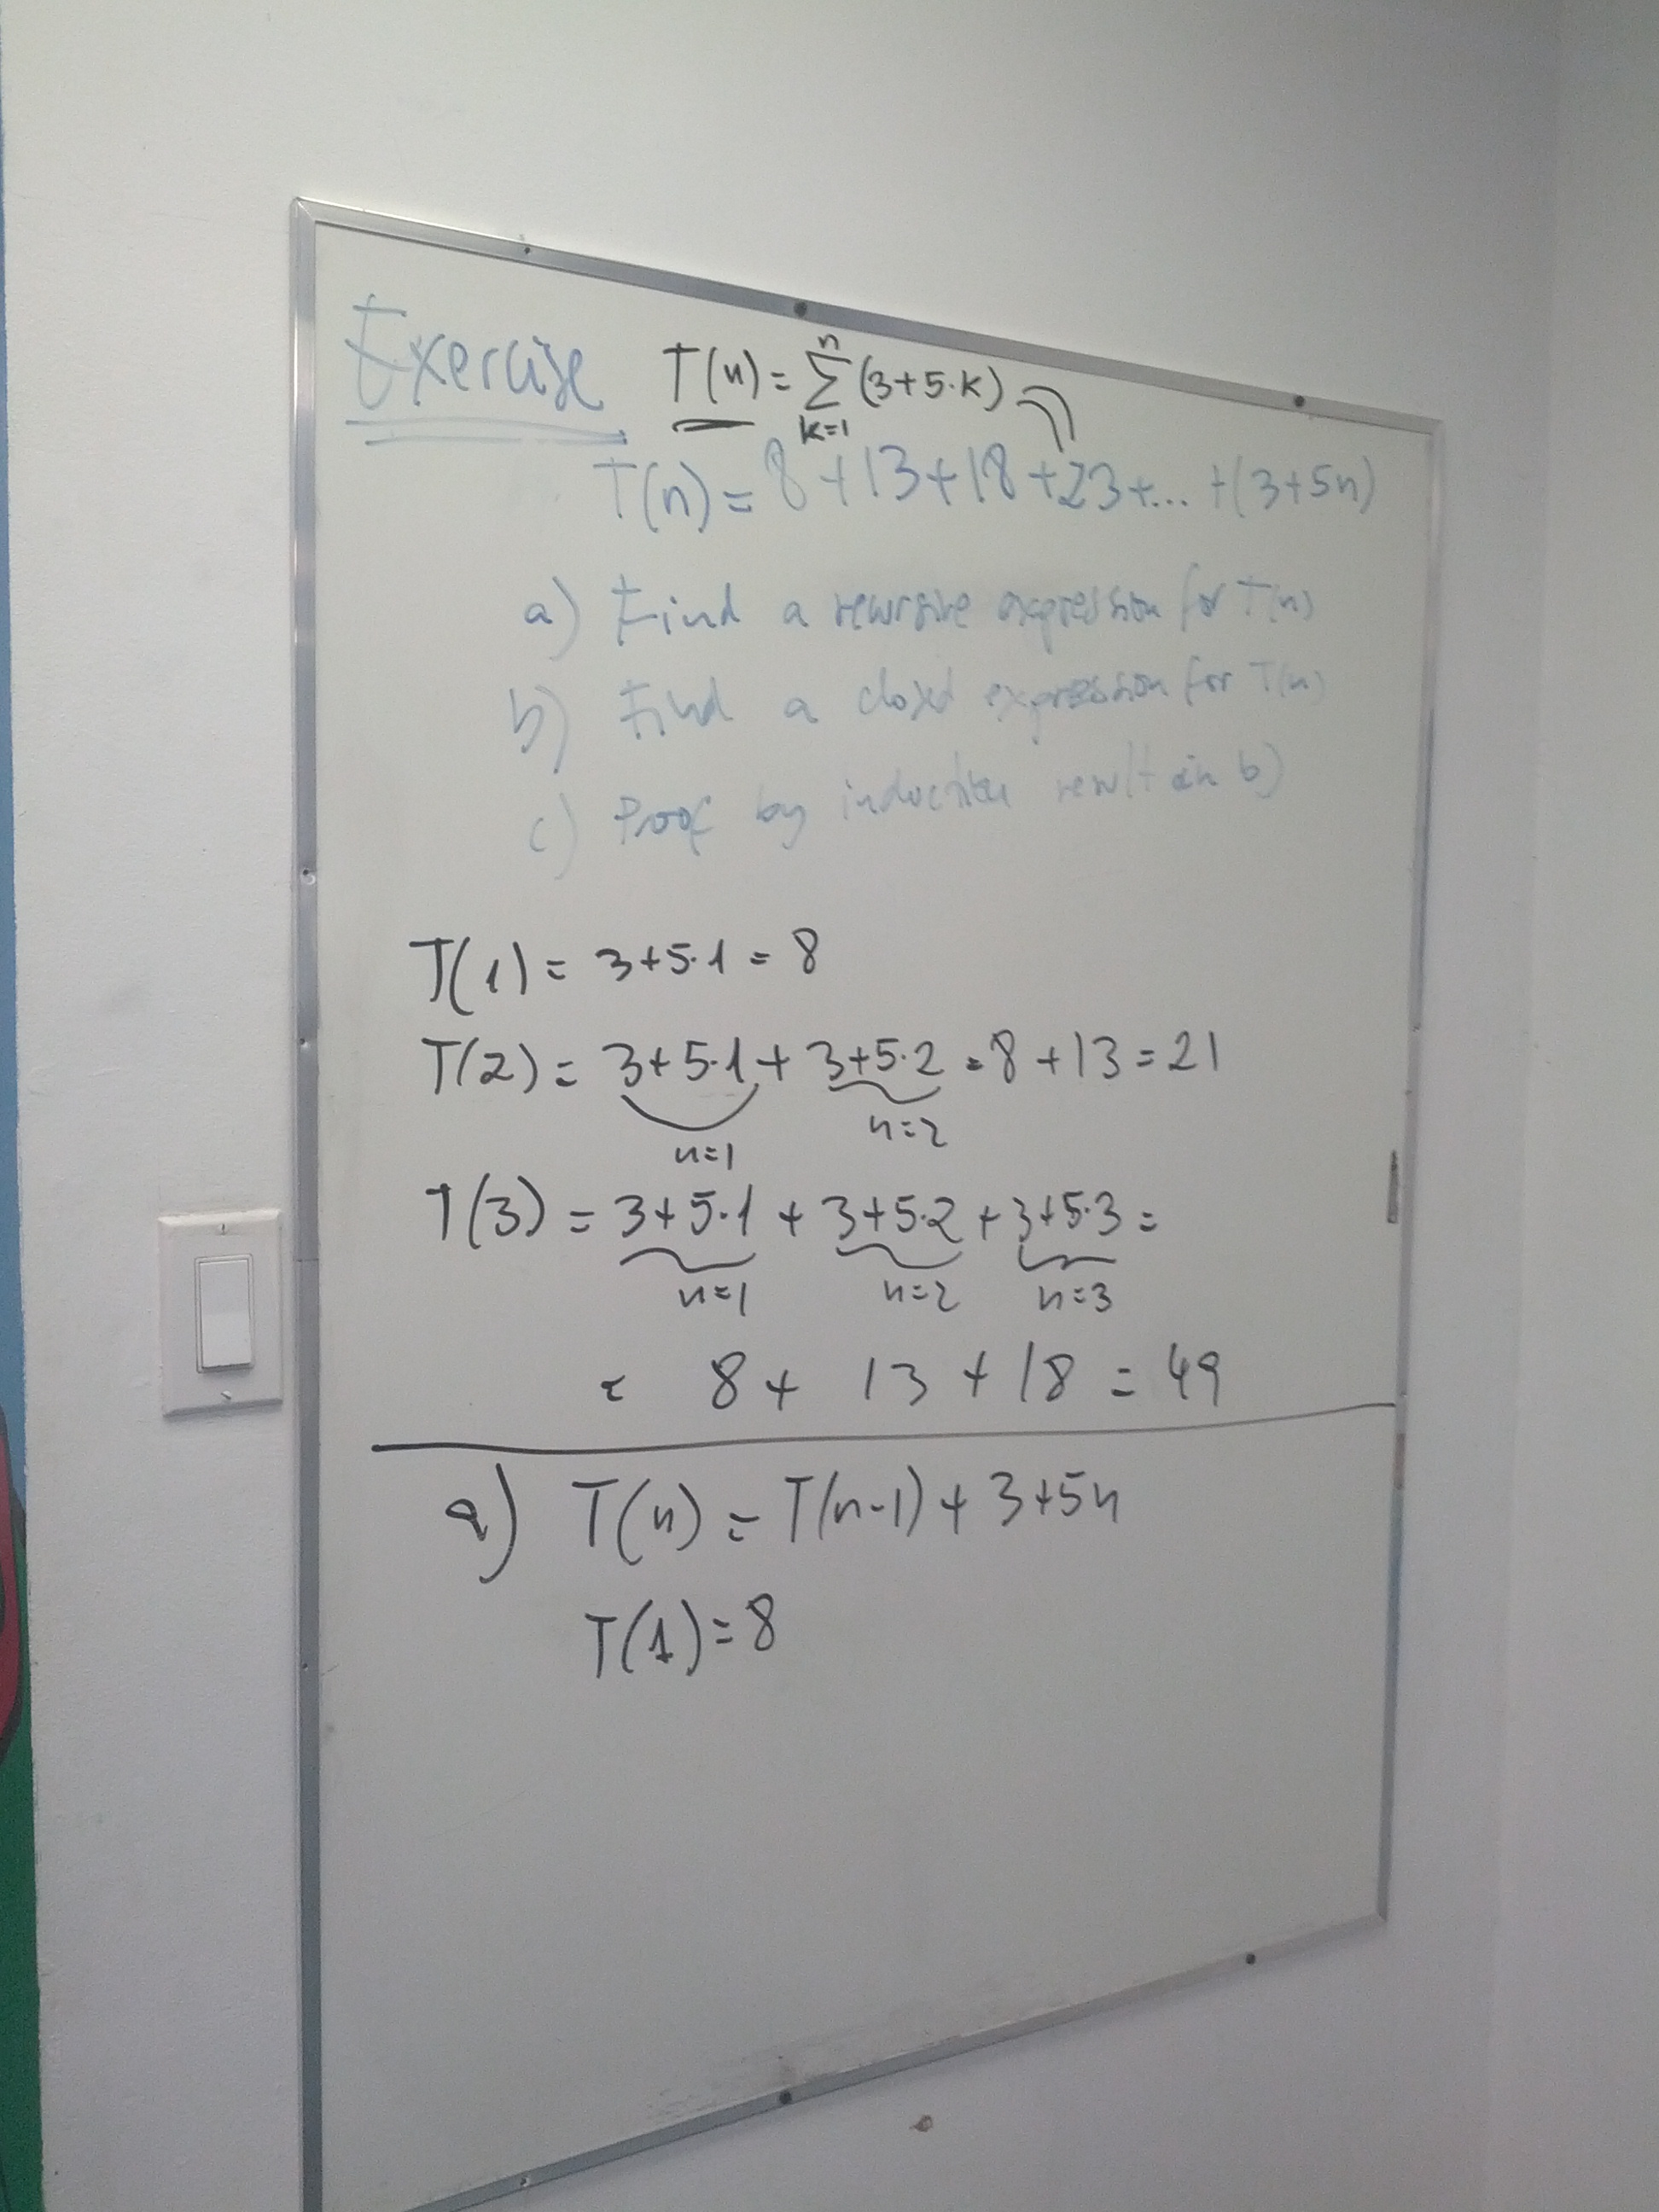 Exercise T(n) = Σ_{k=1}^{n} (3+5·k)
T(n) = 8+13+18+23+... +(3+5n)
a) Find a recursive expression for T(n)
b) Find a closed expression for T(n)
c) Proof by induction result in b)
T(1) = 3+5·1 = 8
T(2) = 3+5·1 + 3+5·2 = 8+13 = 21
n=1 n=2
T(3) = 3+5·1 + 3+5·2 + 3+5·3 =
n=1 n=2 n=3
= 8 + 13 + 18 = 49
a) T(n) = T(n-1) + 3+5n
T(1) = 8